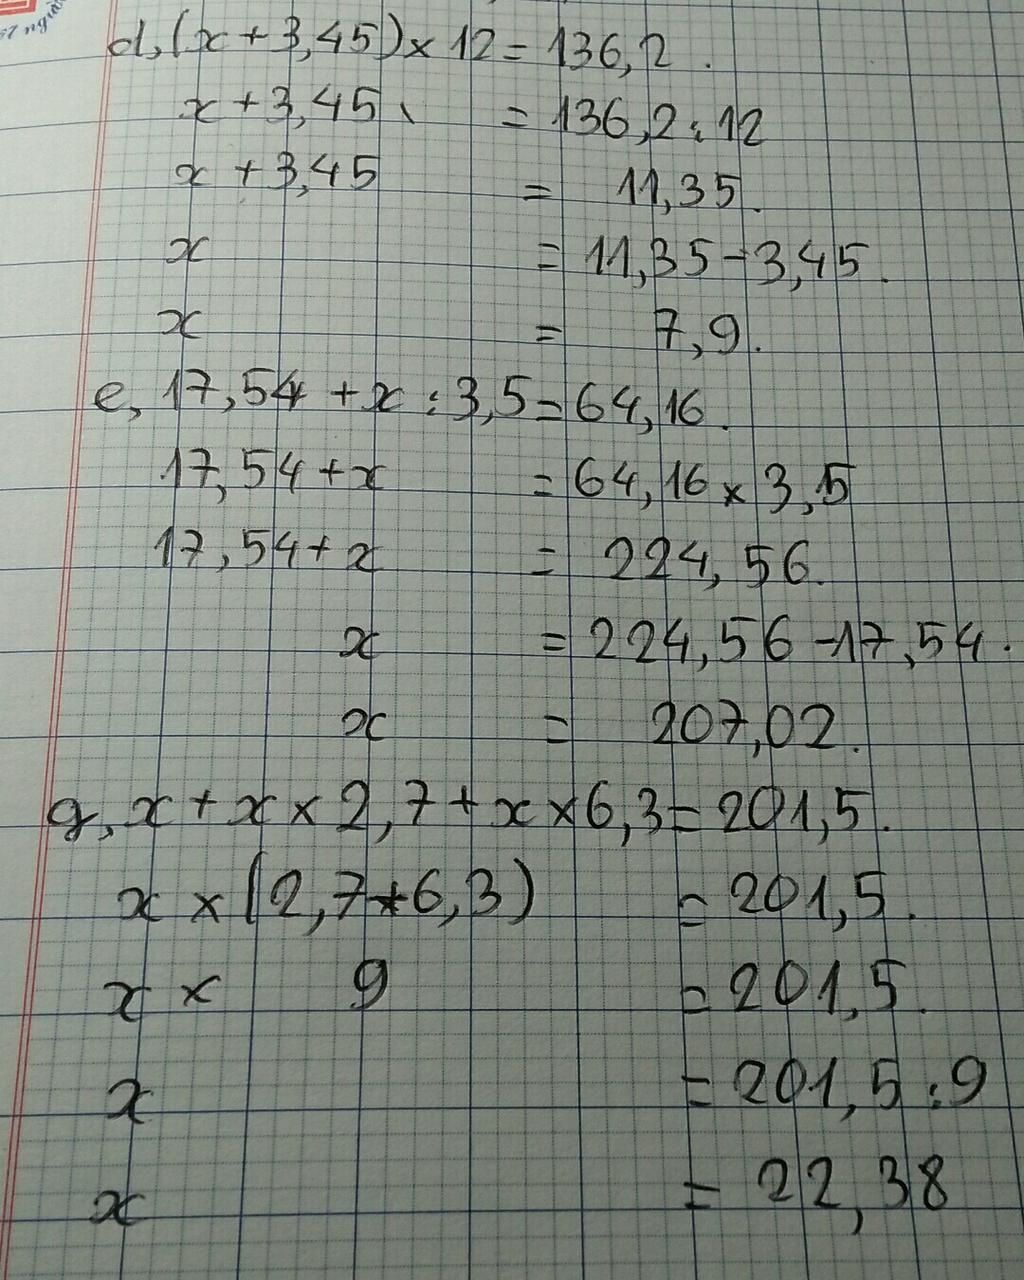 d, (x + 3,45) x 12 = 136,2.
x + 3,45 = 136,2 : 12
x + 3,45 = 11,35.
x = 11,35 - 3,45.
x = 7,9.
e, 17,54 + x : 3,5 = 64,16.
17,54 + x = 64,16 x 3,5
17,54 + x = 224,56.
x = 224,56 - 17,54.
x = 207,02.
g, x + x x 2,7 + x x 6,3 = 201,5.
x x (2,7 + 6,3) = 201,5.
x x 9 = 201,5.
x = 201,5 : 9
x = 22,38